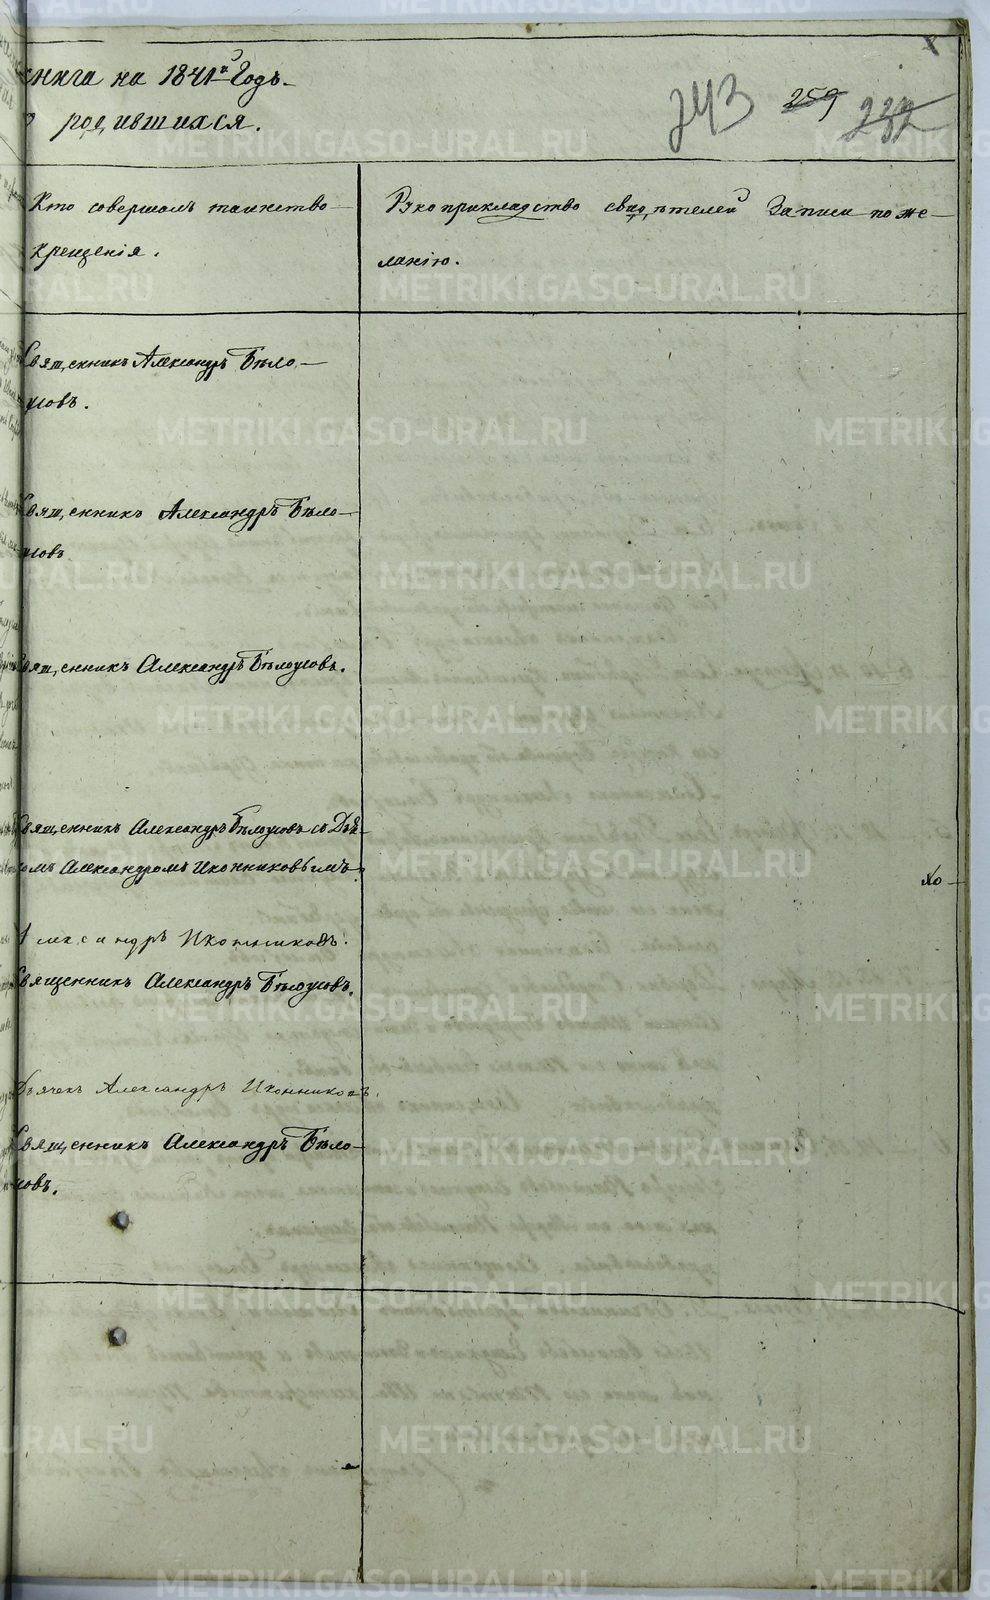 книга на 1841й Годъ.
о родившихся.
243 259 232
Кто совершалъ таинство
крещенія.
Рукоприкладство свидѣтелей Записи по же-
ланію.
Священникъ Александръ Бѣло-
усовъ.
Священникъ Александръ Бѣло-
усовъ
Священникъ Александръ Бѣлоусовъ.
Священникъ Александръ Бѣлоусовъ съ Дьяч-
комъ Александромъ Иконниковымъ.
Александръ Иконниковъ.
Священникъ Александръ Бѣлоусовъ.
Дьячекъ Александръ Иконниковъ.
Священникъ Александръ Бѣло-
усовъ.
METRIKI.GASO-URAL.RU